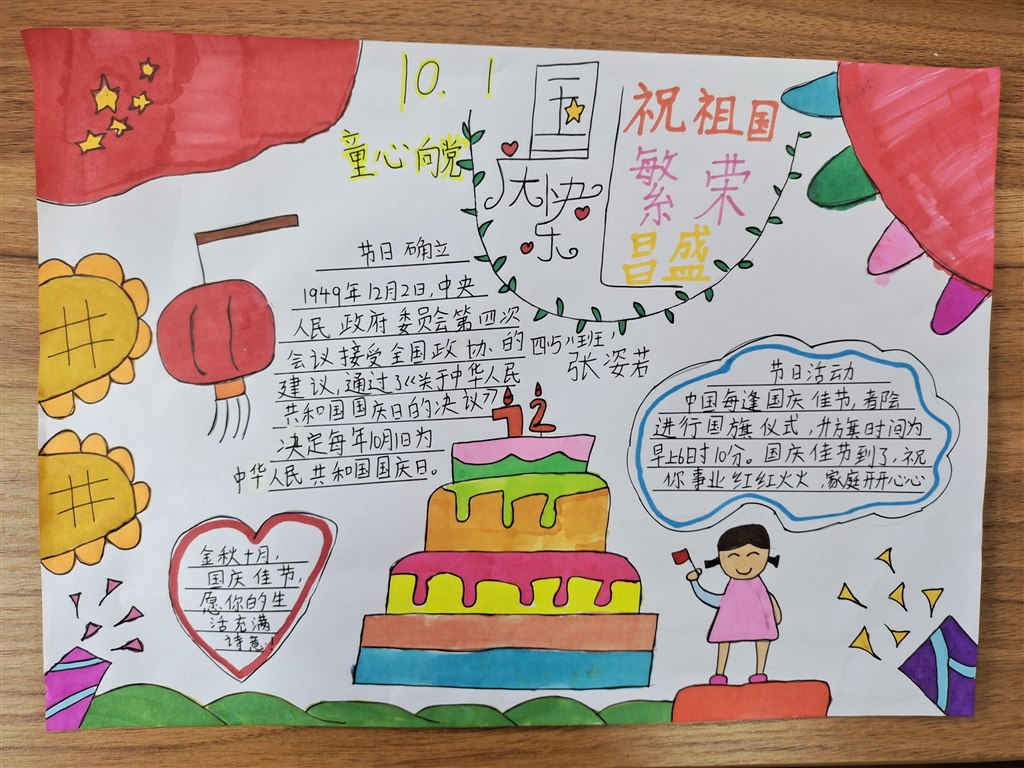 10.1
童心向党
国
庆快
乐
祝祖国
繁荣
昌盛
节日确立
1949年12月2日,中央
人民政府委员会第四次
会议接受全国政协的
建议,通过了《关于中华人民
共和国国庆日的决议》
决定每年10月1日为
中华人民共和国国庆日。
四5班
张姿若
72
节日活动
中国每逢国庆佳节,都会
进行国旗仪式,升旗时间为
早上6时10分。国庆佳节到了,祝
你事业红红火火,家庭开开心心
金秋十月,
国庆佳节,
愿你的生
活充满
诗意!